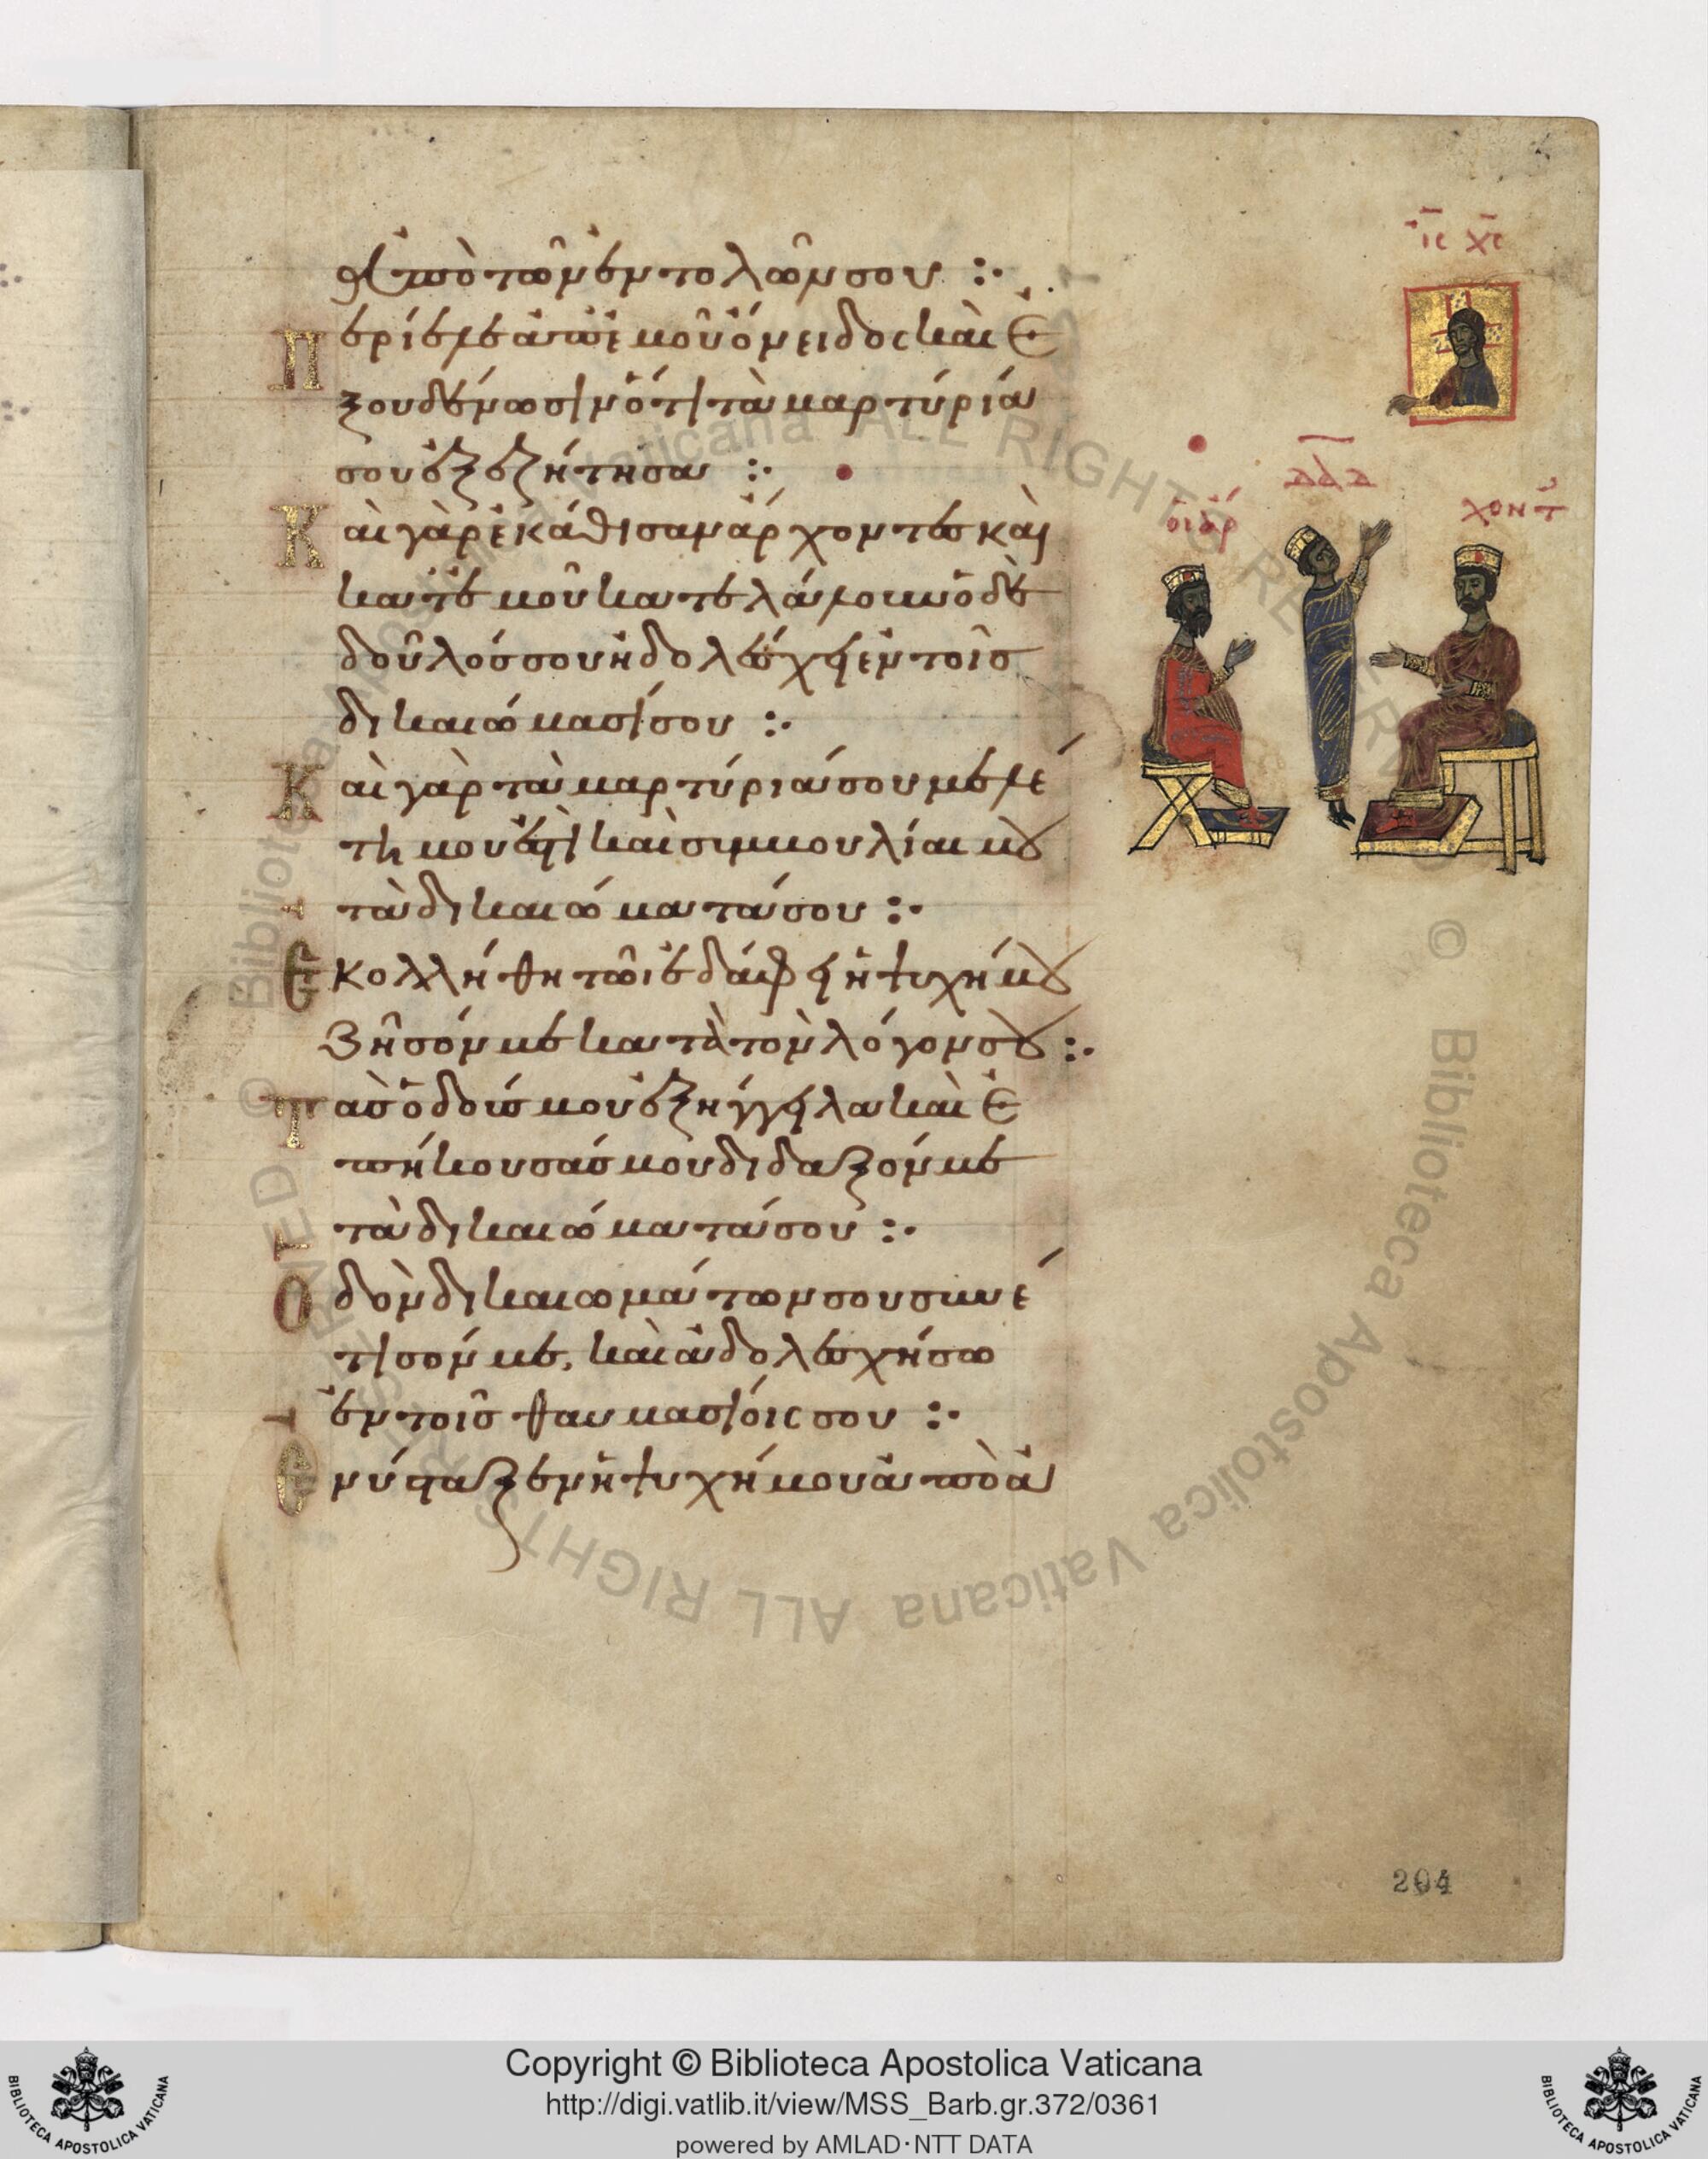 ἀπὸ τῶν ἐντολῶν σου :·
Περίελε ἀπ' ἐμοῦ ὄνειδος καὶ ἐ
ξουδένωσιν ὅτι τὰ μαρτύριά
σου ἐξεζήτησα :·
Καὶ γὰρ ἐκάθισαν ἄρχοντες καὶ
κατ' ἐμοῦ κατελάλουν ὁ δὲ
δοῦλός σου ἠδολέσχει ἐν τοῖς
δικαιώμασί σου :·
Καὶ γὰρ τὰ μαρτύριά σου μελέ
τη μου ἐστὶ καὶ συμβουλίαι μου
τὰ δικαιώματά σου :·
Ἐκολλήθη τῶι ἐδάφει ἡ ψυχή μου
ζῆσόν με κατὰ τὸν λόγον σου :·
Τὰς ὁδούς μου ἐξήγγειλα καὶ ἐ
πήκουσάς μου δίδαξόν με
τὰ δικαιώματά σου :·
Ὁδὸν δικαιωμάτων σου συνέ
τισόν με, καὶ ἀδολεσχήσω
ἐν τοῖς θαυμασίοις σου :·
Ἐνύσταξεν ἡ ψυχή μου ἀπὸ ἀ
ΙC ΧC
δαδ
οἱ ἄρ
χοντ
204
Copyright © Biblioteca Apostolica Vaticana
http://digi.vatlib.it/view/MSS_Barb.gr.372/0361
powered by AMLAD·NTT DATA
BIBLIOTECA APOSTOLICA VATICANA
BIBLIOTECA APOSTOLICA VATICANA
© Biblioteca Apostolica Vaticana ALL RIGHTS RESERVED
© Biblioteca Apostolica Vaticana ALL RIGHTS RESERVED